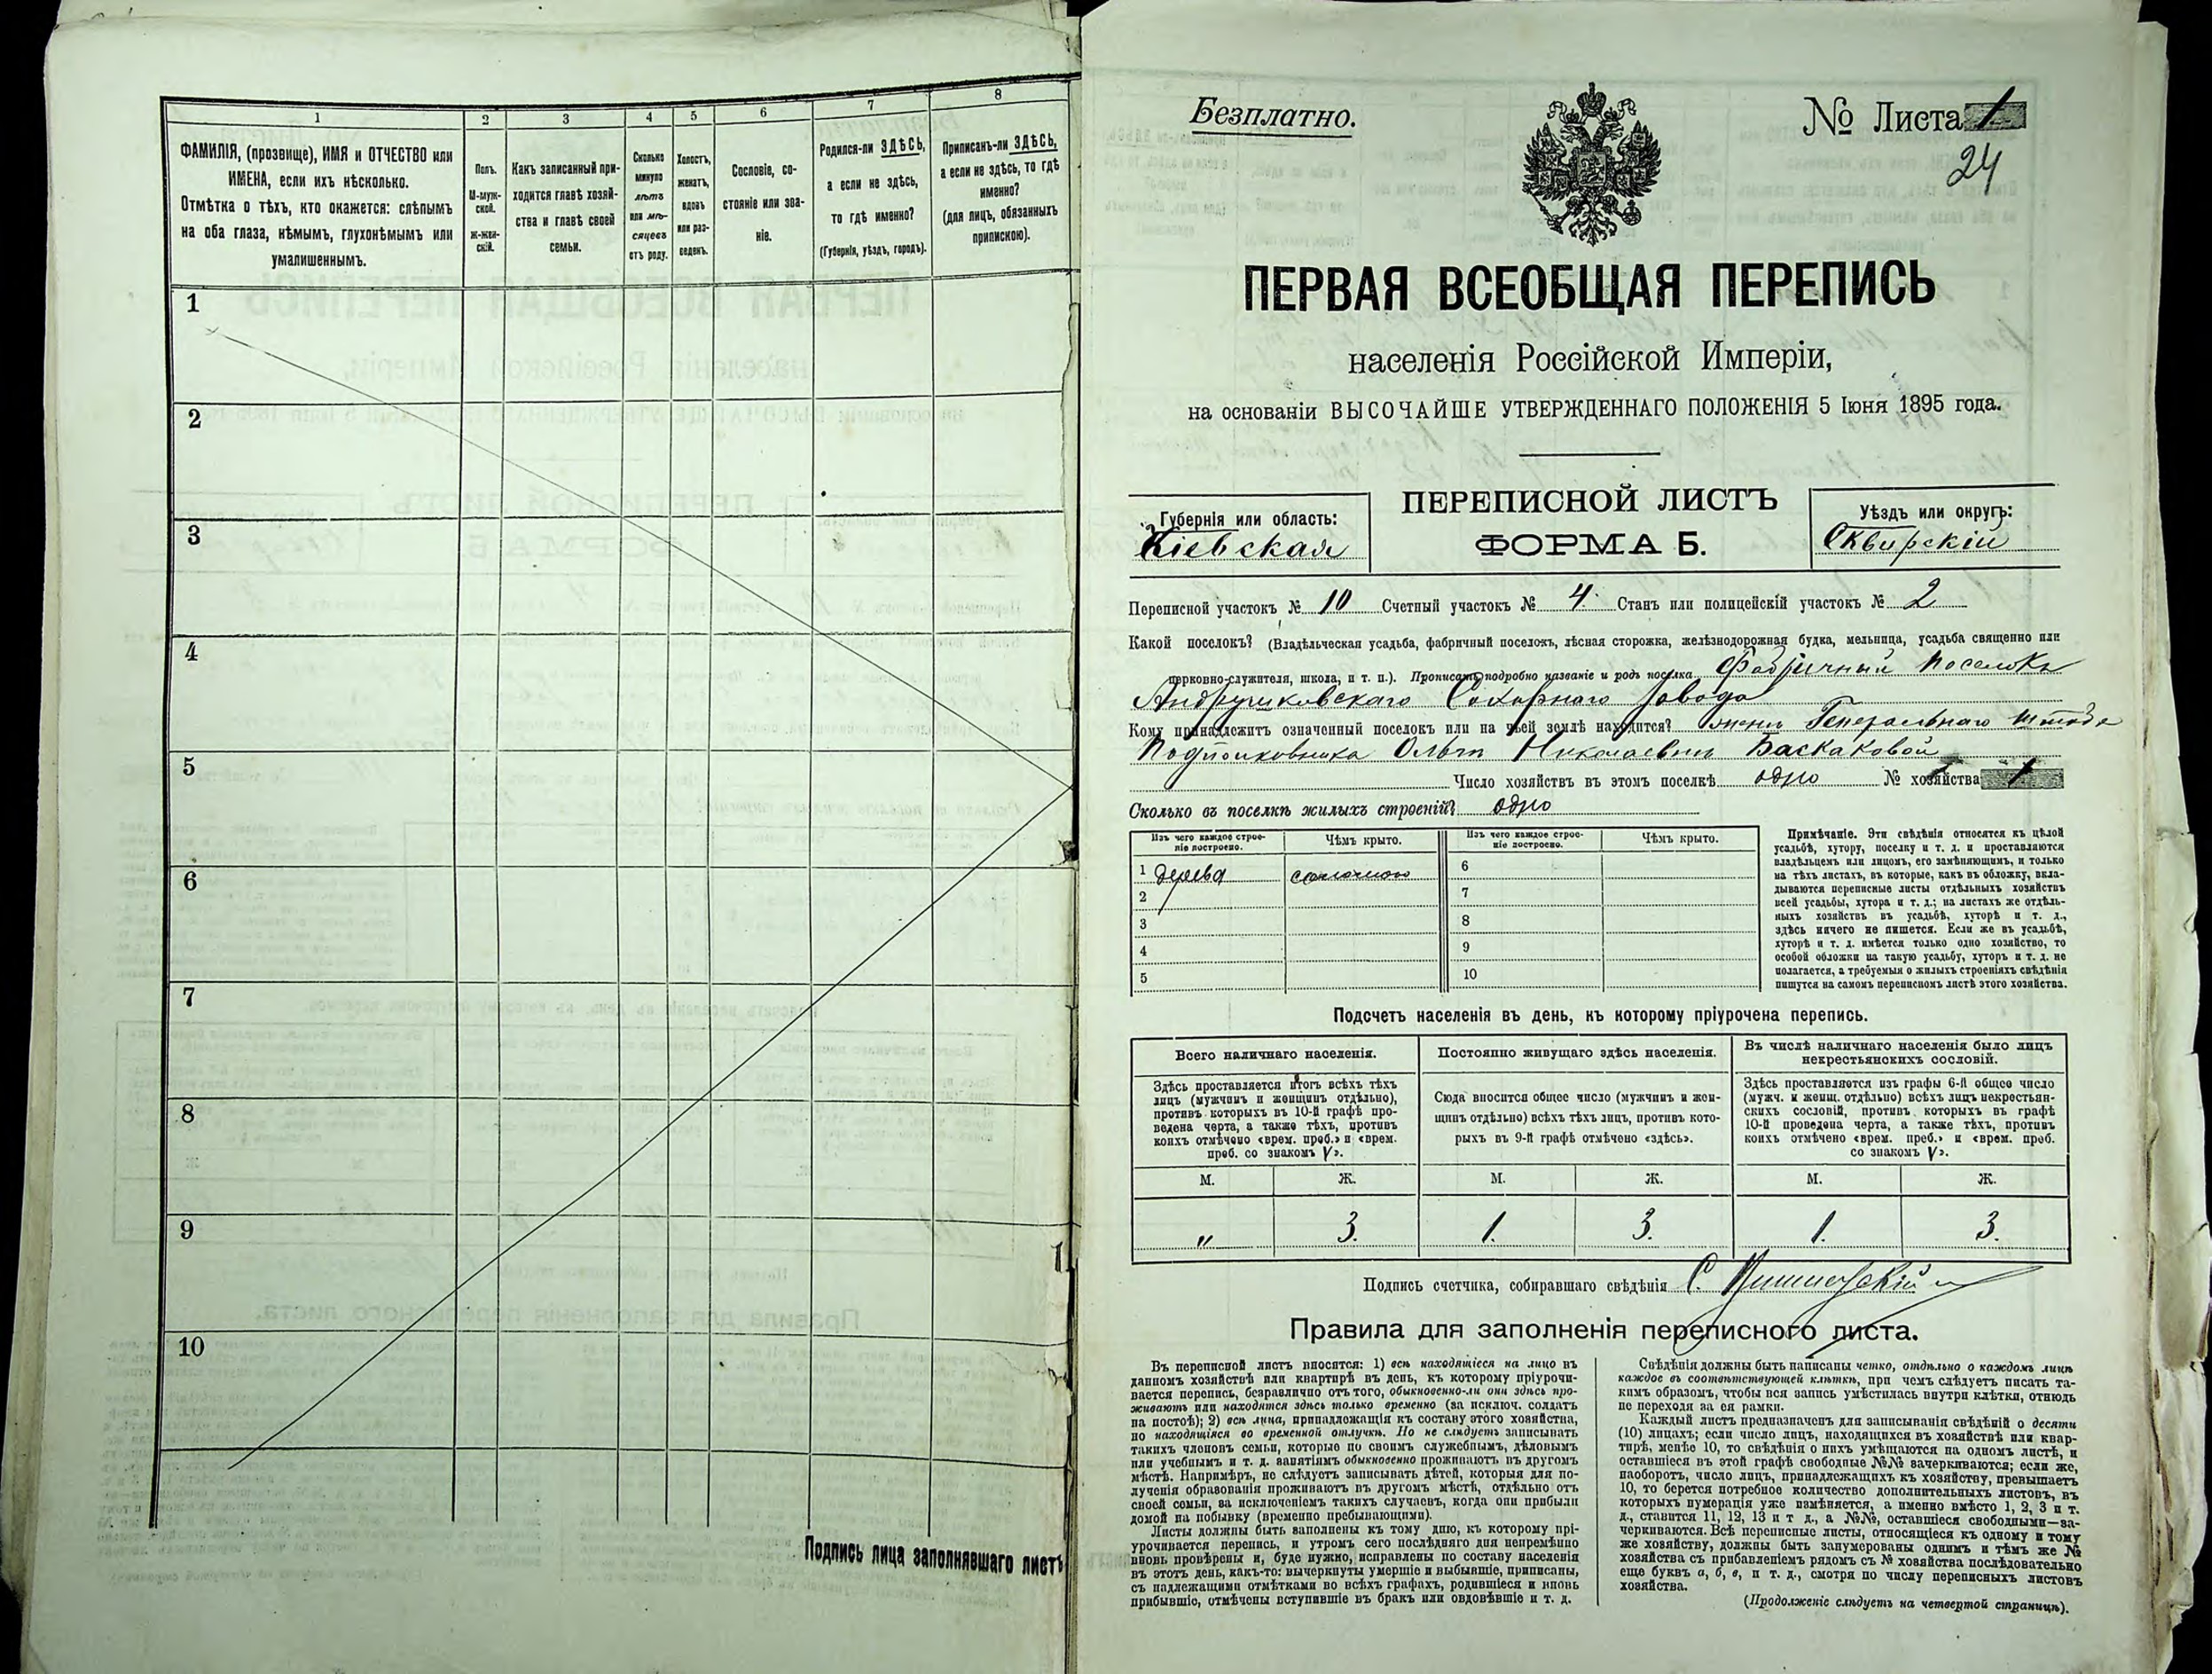 1
2
3
4
5
6
7
8
ФАМИЛІЯ, (прозвище), ИМЯ и ОТЧЕСТВО или
ИМЕНА, если ихъ нѣсколько.
Отмѣтка о тѣхъ, кто окажется: слѣпымъ
на оба глаза, нѣмымъ, глухонѣмымъ или
умалишеннымъ.
Полъ.
М-муж-
ской.
Ж-жен-
скій.
Какъ записанный при-
ходится главѣ хозяй-
ства и главѣ своей
семьи.
Сколько
минуло
лѣтъ
или мѣ-
сяцевъ
отъ роду.
Холостъ,
женатъ,
вдовъ
или раз-
веденъ.
Сословіе, со-
стояніе или зва-
ніе.
Родился-ли ЗДѢСЬ,
а если не здѣсь,
то гдѣ именно?
(Губернія, уѣздъ, городъ).
Приписанъ-ли ЗДѢСЬ,
а если не здѣсь, то гдѣ
именно?
(для лицъ, обязанныхъ
припискою).
1
2
3
4
5
6
7
8
9
10
Подпись лица заполнявшаго листъ
Безплатно.
№ Листа 1
24
ПЕРВАЯ ВСЕОБЩАЯ ПЕРЕПИСЬ
населенія Россійской Имперіи,
на основаніи ВЫСОЧАЙШЕ УТВЕРЖДЕННАГО ПОЛОЖЕНІЯ 5 Іюня 1895 года.
Губернія или область:
Кіевская
ПЕРЕПИСНОЙ ЛИСТЪ
ФОРМА Б.
Уѣздъ или округъ:
Сквирскій
Переписной участокъ № 10 Счетный участокъ № 4. Станъ или полицейскій участокъ № 2
Какой поселокъ? (Владѣльческая усадьба, фабричный поселокъ, лѣсная сторожка, желѣзнодорожная будка, мельница, усадьба священно или
церковно-служителя, школа, и т. п.). Прописать подробно названіе и родъ поселка Фабричный поселокъ
Андрушковскаго Сахарнаго завода
Кому принадлежитъ означенный поселокъ или на чьей землѣ находится? Генеральнаго Штаба
Подполковника Николаевнѣ Баскаковой
Число хозяйствъ въ этомъ поселкѣ одно № хозяйства 1
Сколько въ поселкѣ жилыхъ строеній? одно
Изъ чего каждое строе-
ніе построено.
Чѣмъ крыто.
Изъ чего каждое строе-
ніе построено.
Чѣмъ крыто.
1 дерева соломою
2
3
4
5
6
7
8
9
10
Примѣчаніе. Эти свѣдѣнія относятся къ цѣлой
усадьбѣ, хутору, поселку и т. д. и проставляются
владѣльцемъ или лицомъ, его замѣняющимъ, и только
на тѣхъ листахъ, въ которые, какъ въ обложку, вкла-
дываются переписные листы отдѣльныхъ хозяйствъ
всей усадьбы, хутора и т. д.; на листахъ же отдѣль-
ныхъ хозяйствъ въ усадьбѣ, хуторѣ и т. д.,
здѣсь ничего не пишется. Если же въ усадьбѣ,
хуторѣ и т. д. имѣется только одно хозяйство, то
особой обложки на такую усадьбу, хуторъ и т. д. не
полагается, а требуемыя о жилыхъ строеніяхъ свѣдѣнія
пишутся на самомъ переписномъ листѣ этого хозяйства.
Подсчетъ населенія въ день, къ которому пріурочена перепись.
Всего наличнаго населенія.
Постоянно живущаго здѣсь населенія.
Въ числѣ наличнаго населенія было лицъ
некрестьянскихъ сословій.
Здѣсь проставляется итогъ всѣхъ тѣхъ
лицъ (мужчинъ и женщинъ отдѣльно),
противъ которыхъ въ 10-й графѣ про-
ведена черта, а также тѣхъ, противъ
коихъ отмѣчено «врем. преб.» и «врем.
преб. со знакомъ V».
Сюда вносится общее число (мужчинъ и жен-
щинъ отдѣльно) всѣхъ тѣхъ лицъ, противъ кото-
рыхъ въ 9-й графѣ отмѣчено «здѣсь».
Здѣсь проставляется изъ графы 6-й общее число
(мужч. и женщ. отдѣльно) всѣхъ лицъ некрестьян-
скихъ сословій, противъ которыхъ въ графѣ
10-й проведена черта, а также тѣхъ, противъ
коихъ отмѣчено «врем. преб.» и «врем. преб.
со знакомъ V».
М. Ж. М. Ж. М. Ж.
„ 3. 1. 3. 1. 3.
Подпись счетчика, собиравшаго свѣдѣнія С.
Правила для заполненія переписного листа.
Въ переписной листъ вносятся: 1) всѣ находящіеся на лицо въ
данномъ хозяйствѣ или квартирѣ въ день, къ которому пріурочи-
вается перепись, безразлично отъ того, обыкновенно-ли они здѣсь про-
живаютъ или находятся здѣсь только временно (за исключ. солдатъ
на постоѣ); 2) всѣ лица, принадлежащія къ составу этого хозяйства,
но находящіяся во временной отлучкѣ. Но не слѣдуетъ записывать
такихъ членовъ семьи, которые по своимъ служебнымъ, дѣловымъ
или учебнымъ и т. д. занятіямъ обыкновенно проживаютъ въ другомъ
мѣстѣ. Напримѣръ, не слѣдуетъ записывать дѣтей, которыя для по-
лученія образованія проживаютъ въ другомъ мѣстѣ, отдѣльно отъ
своей семьи, за исключеніемъ такихъ случаевъ, когда они прибыли
домой на побывку (временно пребывающими).
Листы должны быть заполнены къ тому дню, къ которому прі-
урочивается перепись, и утромъ сего послѣдняго дня непремѣнно
вновь провѣрены и, буде нужно, исправлены по составу населенія
въ этотъ день, какъ-то: вычеркнуты умершіе и выбывшіе, приписаны,
съ надлежащими отмѣтками во всѣхъ графахъ, родившіеся и вновь
прибывшіе, отмѣчены вступившіе въ бракъ или овдовѣвшіе и т. д.
Свѣдѣнія должны быть написаны четко, отдѣльно о каждомъ лицѣ
каждое въ соотвѣтствующей клѣткѣ, при чемъ слѣдуетъ писать та-
кимъ образомъ, чтобы вся запись умѣстилась внутри клѣтки, отнюдь
не переходя за ея рамки.
Каждый листъ предназначенъ для записыванія свѣдѣній о десяти
(10) лицахъ; если число лицъ, находящихся въ хозяйствѣ или квар-
тирѣ, менѣе 10, то свѣдѣнія о нихъ умѣщаются на одномъ листѣ, и
оставшіеся въ этой графѣ свободные №№ зачеркиваются; если же,
наоборотъ, число лицъ, принадлежащихъ къ хозяйству, превышаетъ
10, то берется потребное количество дополнительныхъ листовъ, въ
которыхъ нумерація уже измѣняется, а именно вмѣсто 1, 2, 3 и т.
д., ставится 11, 12, 13 и т д., а №№, оставшіеся свободными—за-
черкиваются. Всѣ переписные листы, относящіеся къ одному и тому
же хозяйству, должны быть занумерованы однимъ и тѣмъ же №
хозяйства съ прибавленіемъ рядомъ съ № хозяйства послѣдовательно
еще буквъ а, б, в, и т. д., смотря по числу переписныхъ листовъ
хозяйства.
(Продолженіе слѣдуетъ на четвертой страницѣ).